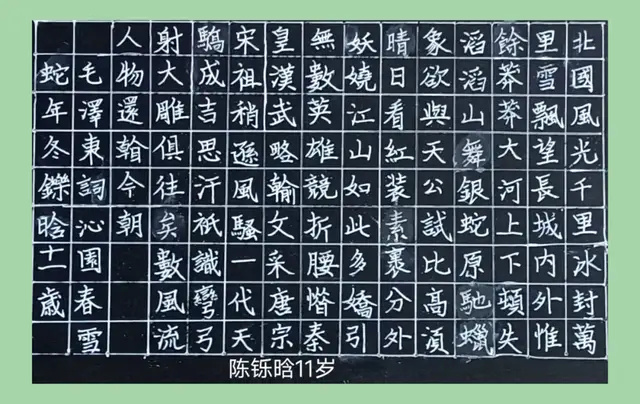 北國風光千里冰封萬
里雪飄望長城内外惟
餘莽莽大河上下頓失
滔滔山舞銀蛇原馳蠟
象欲與天公試比高湏
晴日看紅裝素裹分外
妖嬈江山如此多嬌引
無數英雄競折腰惜秦
皇漢武略輸文采唐宗
宋祖稍遜風騷一代天
驕成吉思汗祇識彎弓
射大雕俱往矣數風流
人物還翰今朝
毛澤東詞沁園春雪
蛇年冬鑠晗十一歲
陈铄晗11岁